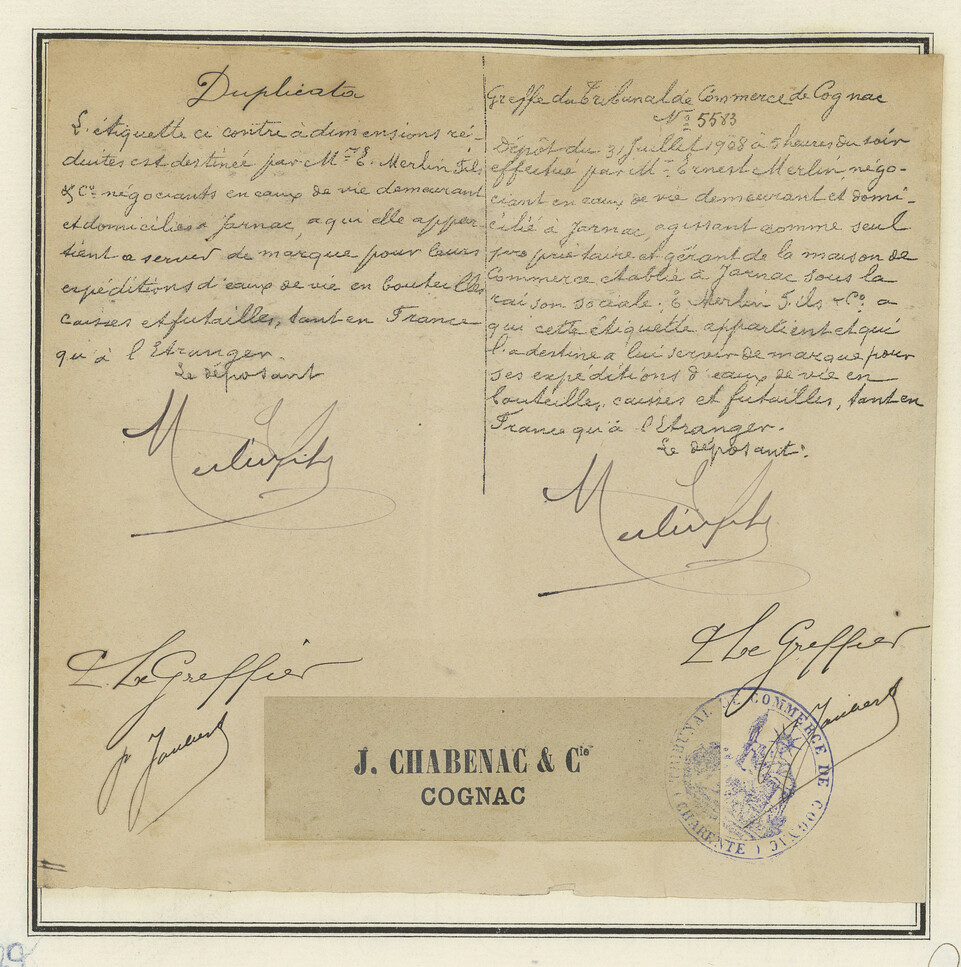 Duplicata
L'étiquette ci contre à dimensions ré-
duites est destinée par Mr E. Merlin Fils
& Co. négociants en eaux de vie demeurant
et domiciliés à Jarnac, a qui elle appar-
tient a servir de marque pour leurs
expéditions d'eaux de vie en bouteilles
caisses et futailles, tant en France
qu'à l'Etranger.
Le déposant
Merlin fils
P. Le Greffier
Greffe du Tribunal de Commerce de Cognac
No 5583
Dépôt du 31 Juillet 1908 à 5 heures du soir
effectué par Mr Ernest Merlin, négo-
ciant en eaux de vie demeurant et domi-
cilié à Jarnac, agissant comme seul
propriétaire et gérant de la maison de
Commerce etablie à Jarnac sous la
raison sociale: E Merlin Fils & Co. a
qui cette étiquette appartient et qui
l'a destine a lui servir de marque pour
ses expéditions d'eaux de vie en
bouteilles, caisses et futailles, tant en
France qu'à l'Etranger.
Le déposant.
Merlin fils
P Le Greffier
J. CHABENAC & Cie
COGNAC
TRIBUNAL DE COMMERCE DE COGNAC
(CHARENTE)